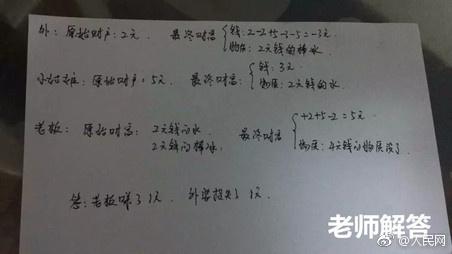 外: 原始财产: 2元 最终财富 钱: 2-2+5-3-5=-3元
物质: 2元钱的棒冰
小姑娘: 原始财产: 5元 最终财富: 钱: 3元
物质: 2元钱的水
老板: 原始财富: 2元钱的水 最终财富 +2+5-2=5元
2元钱的棒冰. 物质: 4元钱的物质没了
答: 老板赚了1元 外婆损失了1元
老师解答
@人民网